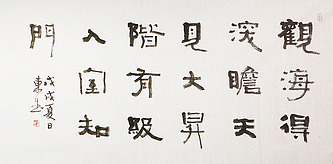 觀海得
深瞻天
見大昇
階有級
入室知
門
戊戌夏日
東